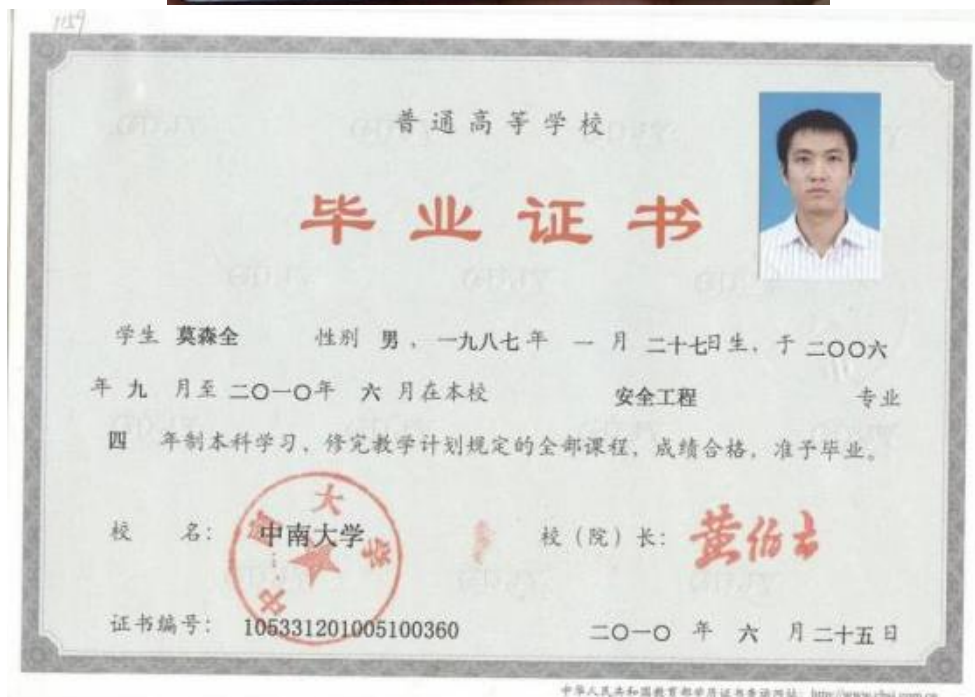 1159
普通高等学校
毕业证书
学生 莫森全 性别 男 , 一九八七 年 一 月 二十七日生, 于 二〇〇六
年 九 月至 二〇一〇年 六 月在本校 安全工程 专业
四 年制本科学习, 修完教学计划规定的全部课程, 成绩合格, 准予毕业。
校 名: 中南大学 校 (院) 长: 黄伯云
证书编号: 105331201005100360 二〇一〇 年 六 月二十五日
中华人民共和国教育部学历证书查询网站: http://www.chsi.com.cn